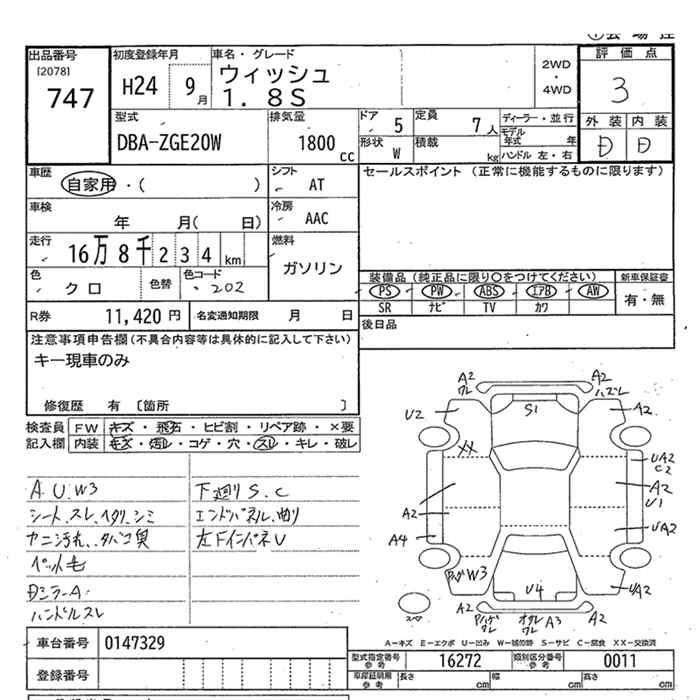 出品番号
[2078]
747
初度登録年月
H24
9月
車名・グレード
ウィッシュ
1.8S
2WD
・
4WD
評価点
3
外装 内装
D D
型式
DBA-ZGE20W
排気量
1800cc
ドア 5
形状 W
定員 7人
積載 kg
ディーラー・並行
モデル年式 年
ハンドル 左・右
車歴
自家用・( )
シフト AT
セールスポイント (正常に機能するものに限ります)
車検 年 月( 日)
冷房 AAC
走行 16万8千234km
燃料
ガソリン
色 クロ
色替
色コード 202
装備品 (純正品に限り○をつけてください)
新車保証書
PS PW ABS エアB AW
有・無
SR ナビ TV カワ
R券 11,420円
名変通知期限 月 日
後日品
注意事項申告欄(不具合内容等は具体的に記入して下さい)
キー現車のみ
修復歴 有 〔箇所 〕
検査員 FW キズ・飛石・ヒビ割・リペア跡・×要
記入欄 内装 キズ・汚レ・コゲ・穴・スレ・キレ・破レ
A U W3
シート、スレ、ヘタリ、シミ
ヤニ汚れ、タバコ臭
ペット毛
DミラーA
ハンドルスレ
下廻りS.C
エンドパネル曲り
左FインパネU
A2
ワレ
A2
ハズレ
U2
S1
A2
XX
UA2
C2
A2
U1
A2
UA2
A4
W3
U4
UA2
スペア
A2
ワレ
ワレ
A3
A2
A-キズ E-エクボ U-凹み W-補修跡 S-サビ C-腐食 XX-交換済
車台番号 0147329
型式指定番号
参考
16272
類別区分番号
参考
0011
登録番号
車庫証明用
参考
長さ cm
幅 cm
高さ cm